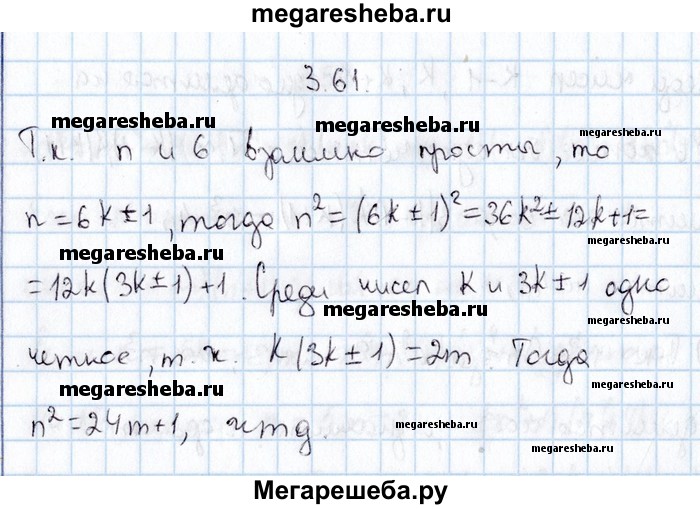 megaresheba.ru
3.61.
megaresheba.ru megaresheba.ru megaresheba.ru
Т.к. n и 6 взаимно просты, то
n=6k±1, тогда n²=(6k±1)²=36k²±12k+1=
megaresheba.ru megaresheba.ru
=12k(3k±1)+1. Среди чисел k и 3k±1 одно
megaresheba.ru megaresheba.ru
четное, т.к. k(3k±1)=2m. Тогда
megaresheba.ru megaresheba.ru
n²=24m+1, чтд.
megaresheba.ru megaresheba.ru
Мегарешеба.ру